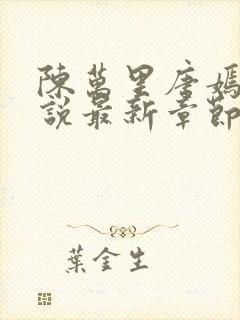 陳萬里唐嫣
說最新章節
葉金生